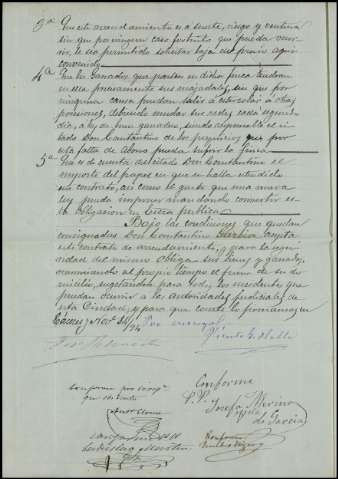 3ª Que este arrendamiento es a suerte, riesgo y ventura
sin que por ningun caso fortuito que pueda ocur-
rir, le sea permitido solicitar baja del precio aqui
convenido
4ª Que los ganados que pasten en dicha finca tendran
en ella precisamente sus majadales, sin que por
ninguna causa puedan salir a estercolar a otras
posesiones, debiendo mudar sus redes cada segundo
dia, a ley de buen ganadero, siendo responsable el ci-
tado Don Constantino de los perjuicios que por
esta falta de abono pueda sufrir la finca
5ª Que es de cuenta del citado Don Constantino el
importe del papel en que se halla extendido
este contrato, asi como el gasto que una nueva
ley pueda imponer mandando convertir es-
ta obligacion en Escra publica
Bajo las condiciones que quedan
consignadas Don Constantino acepta
este contrato de arrendamiento, y para la segu-
ridad del mismo obliga sus bienes y ganados,
renunciando al propio tiempo el fuero de su do-
micilio, sugetandose para todos los incidentes que
puedan ocurrir a las autoridades judiciales de
esta Ciudad, y para que conste lo firmamos en
Cáceres
Por encargo
Vicente
Conforme
P. P.
Josefa Merino
de Garcia
Conforme